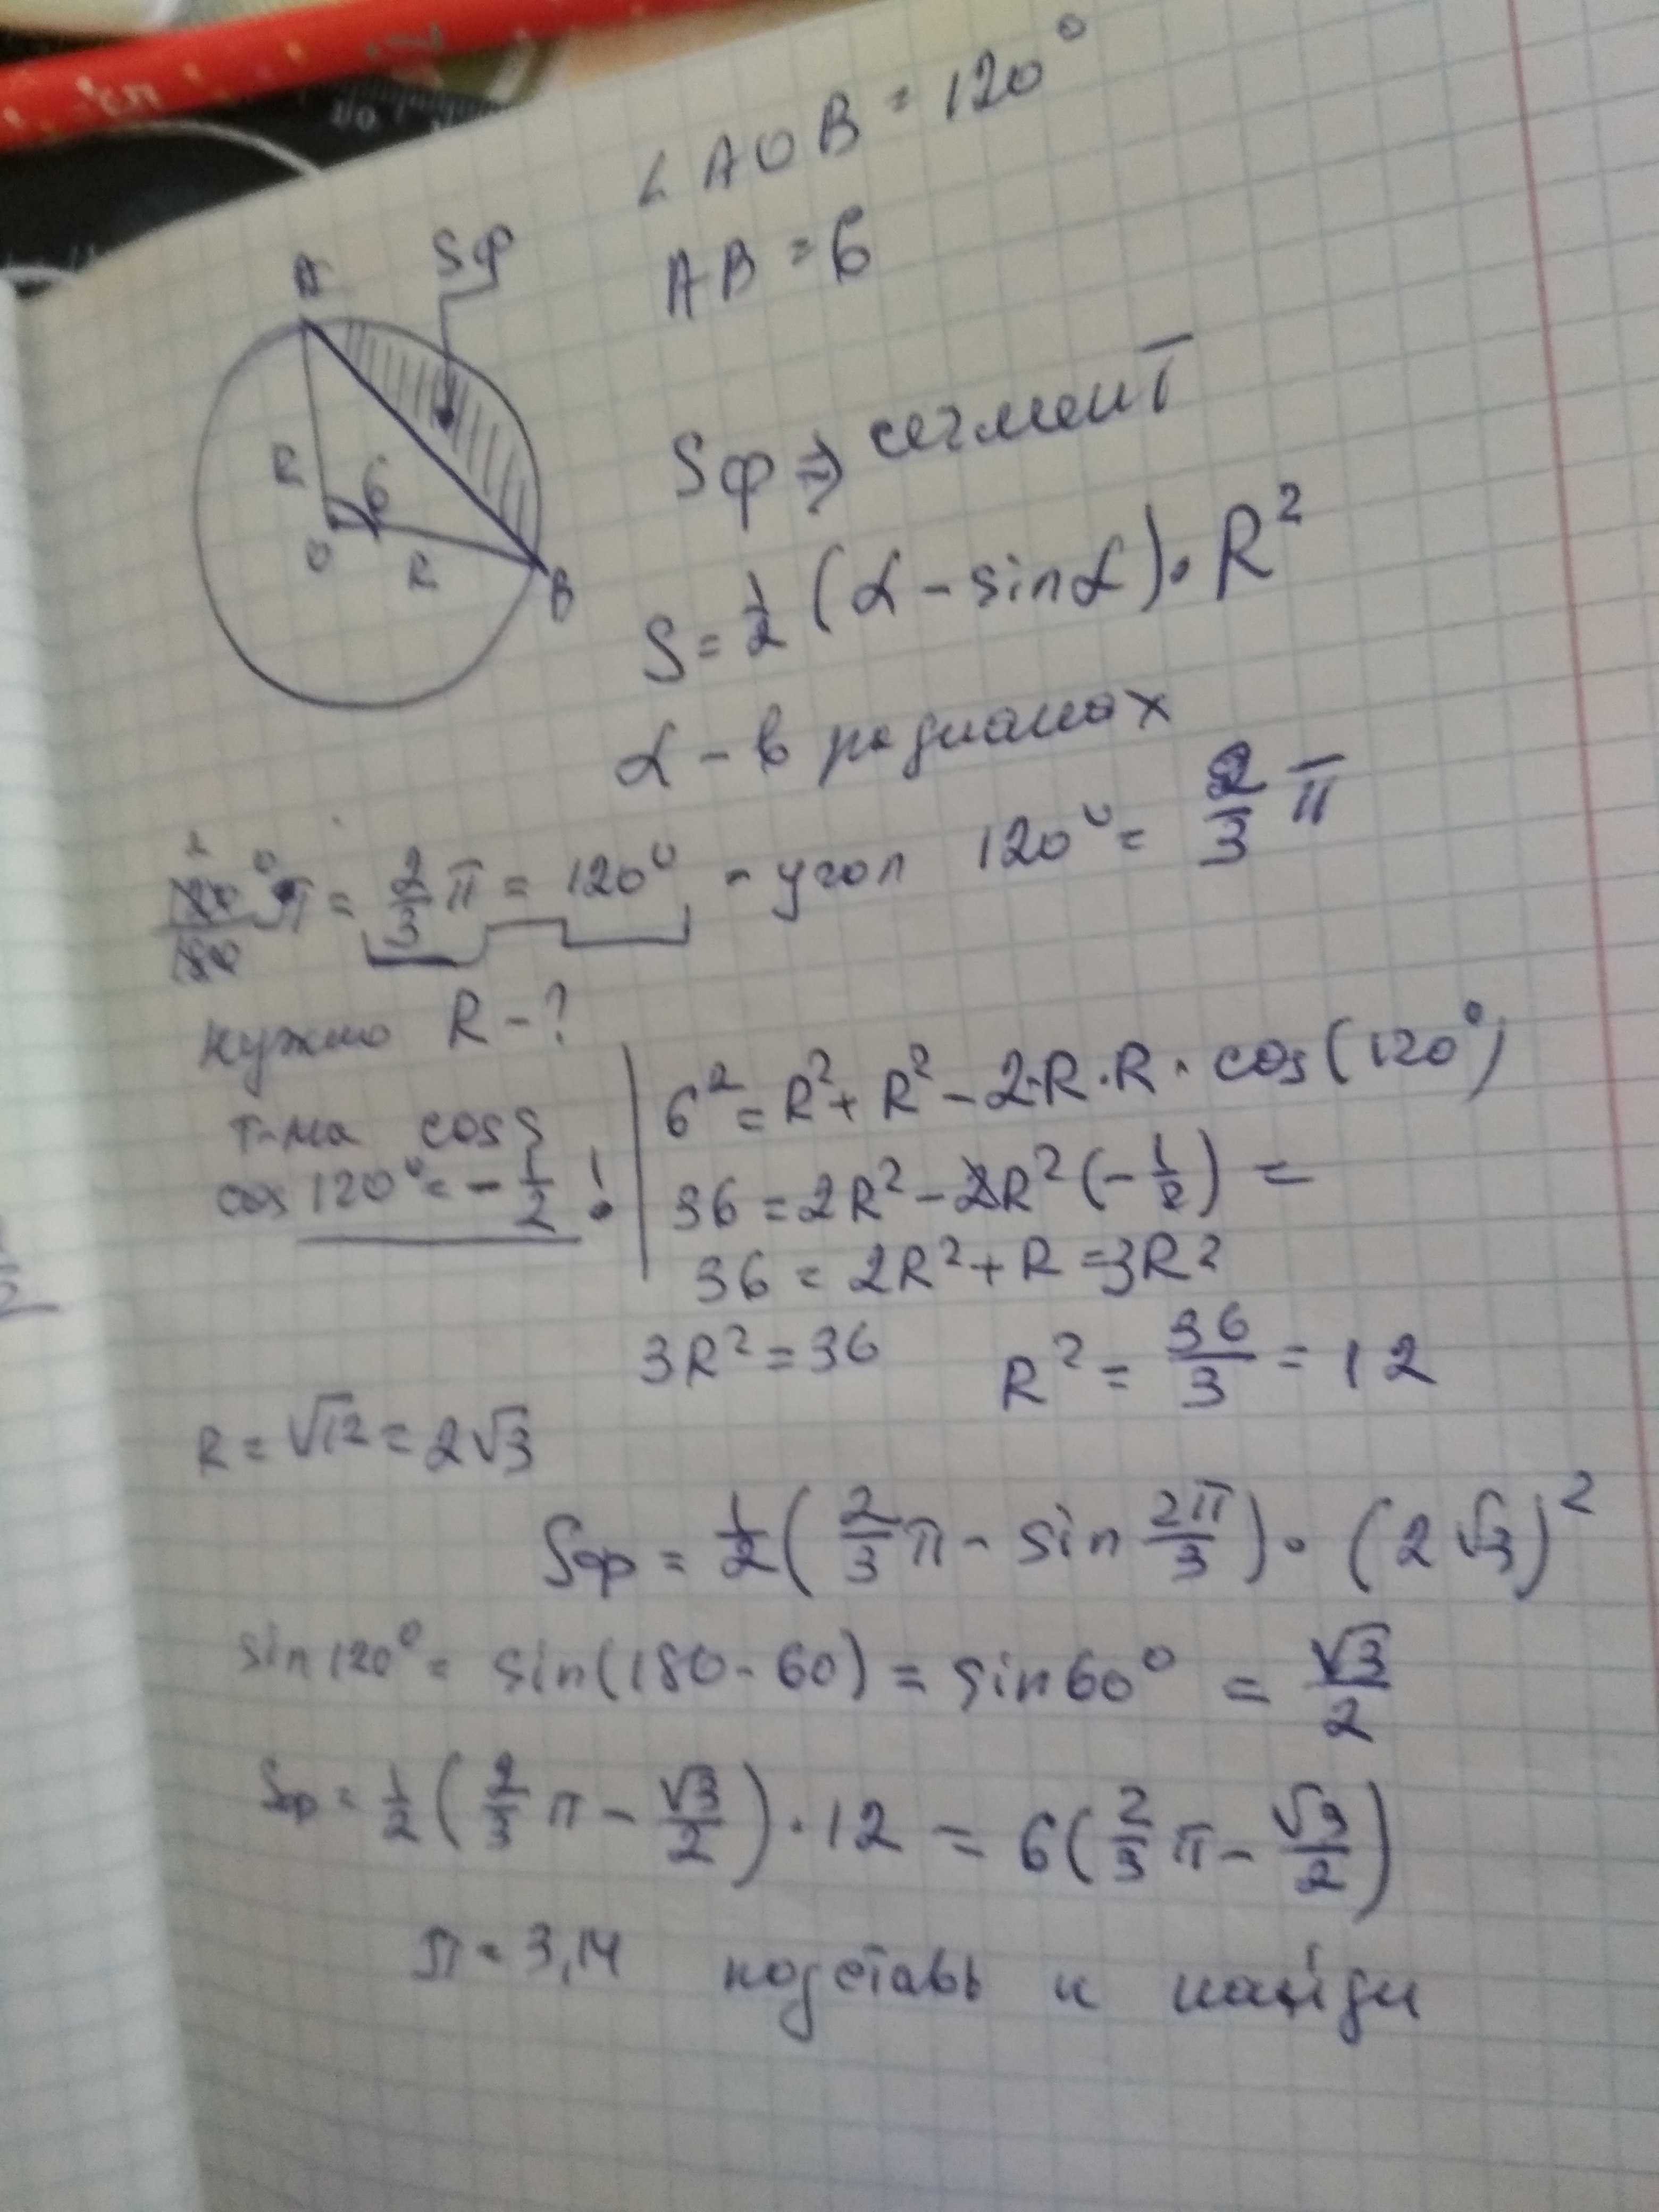 ∠AOB = 120°
AB = 6
A Sф
R 6
O R B
Sф ⇒ сегмент
S = 1/2 (α - sin α) · R²
α - в радианах
π = 2/3 π = 120° - угол 120° = 2/3 π
нужно R - ?
т-ма cos
cos 120° = - 1/2 !
6² = R² + R² - 2·R·R · cos(120°)
36 = 2R² - 2R² (- 1/2) =
36 = 2R² + R = 3R²
3R² = 36 R² = 36/3 = 12
R = √12 = 2√3
Sф = 1/2 (2/3 π - sin 2π/3) · (2√3)²
sin 120° = sin(180 - 60) = sin 60° = √3/2
Sф = 1/2 (2/3 π - √3/2) · 12 = 6(2/3 π - √3/2)
π = 3,14 подставь и найди